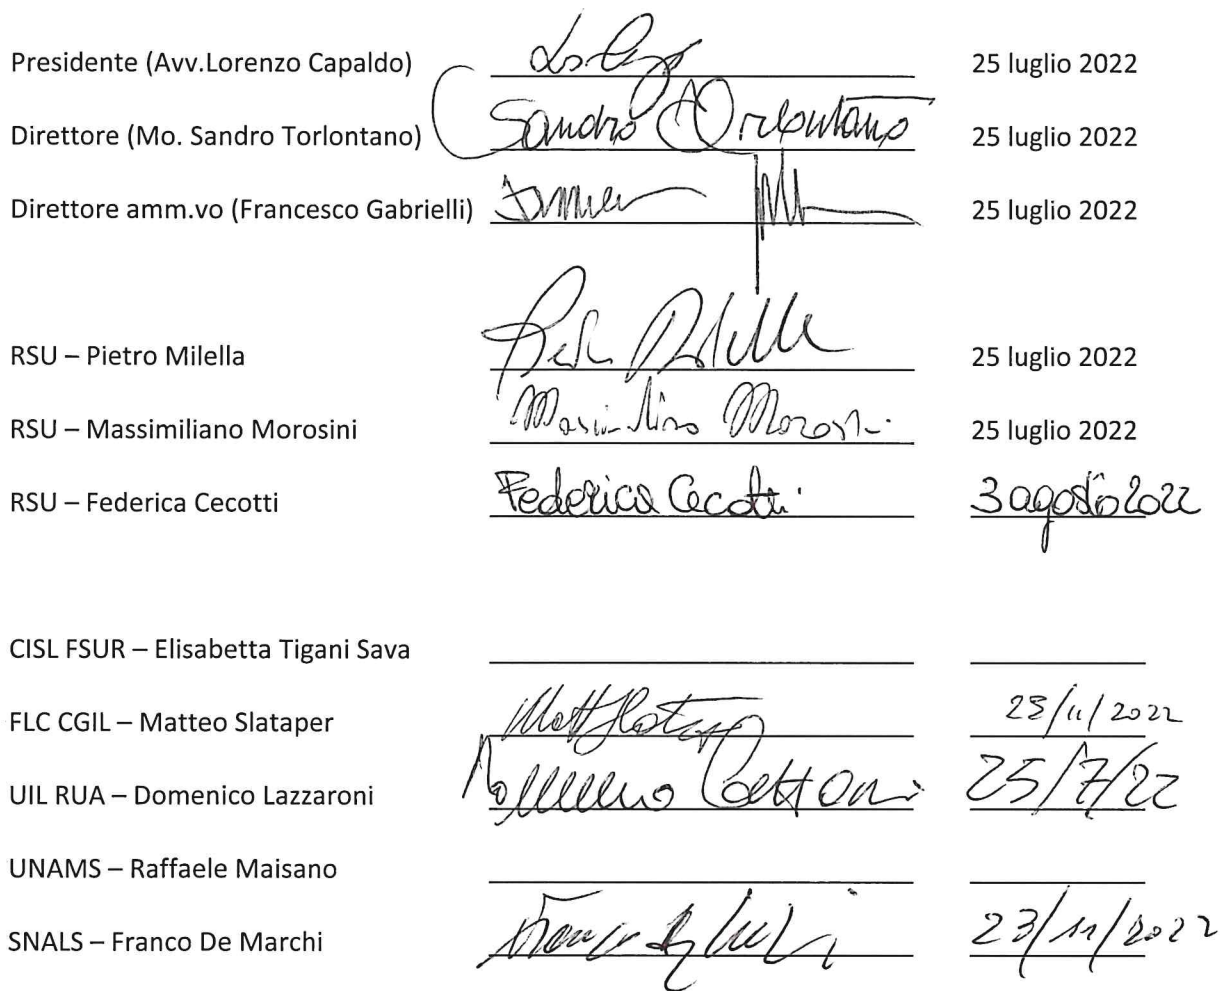 Presidente (Avv.Lorenzo Capaldo) 25 luglio 2022
Direttore (Mo. Sandro Torlontano) Sandro Torlontano 25 luglio 2022
Direttore amm.vo (Francesco Gabrielli) 25 luglio 2022
RSU – Pietro Milella 25 luglio 2022
RSU – Massimiliano Morosini 25 luglio 2022
RSU – Federica Cecotti Federica Cecotti 3 agosto 2022
CISL FSUR – Elisabetta Tigani Sava
FLC CGIL – Matteo Slataper 23/11/2022
UIL RUA – Domenico Lazzaroni 25/7/22
UNAMS – Raffaele Maisano
SNALS – Franco De Marchi 23/11/2022